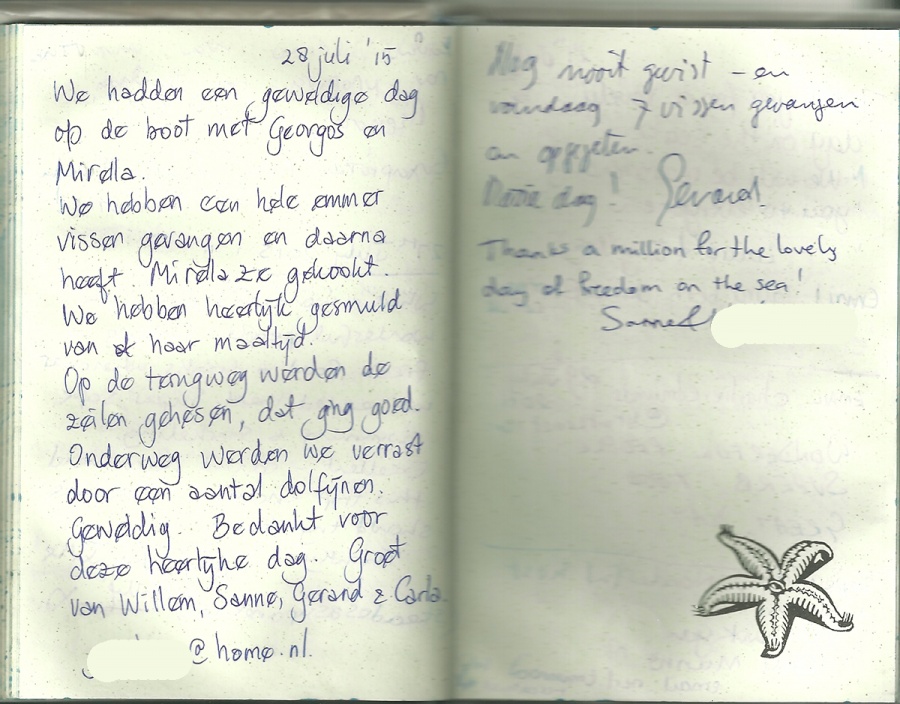 28 juli '15
We hadden een geweldige dag
op de boot met Georgos en
Mirella.
We hebben een hele emmer
vissen gevangen en daarna
heeft Mirella ze gekookt.
We hebben heerlijk gesmuld
van haar maaltijd.
Op de terugweg werden de
zeilen gehesen, dat ging goed.
Onderweg werden we verrast
door een aantal dolfijnen.
Geweldig. Bedankt voor
deze heerlijke dag. Groet
van Willem, Sanne, Gerard & Carla.
@home.nl.
Nog nooit gevist - en
vandaag 7 vissen gevangen
en opgegeten.
Mooie dag! Gerard
Thanks a million for the lovely
day of freedom on the sea!